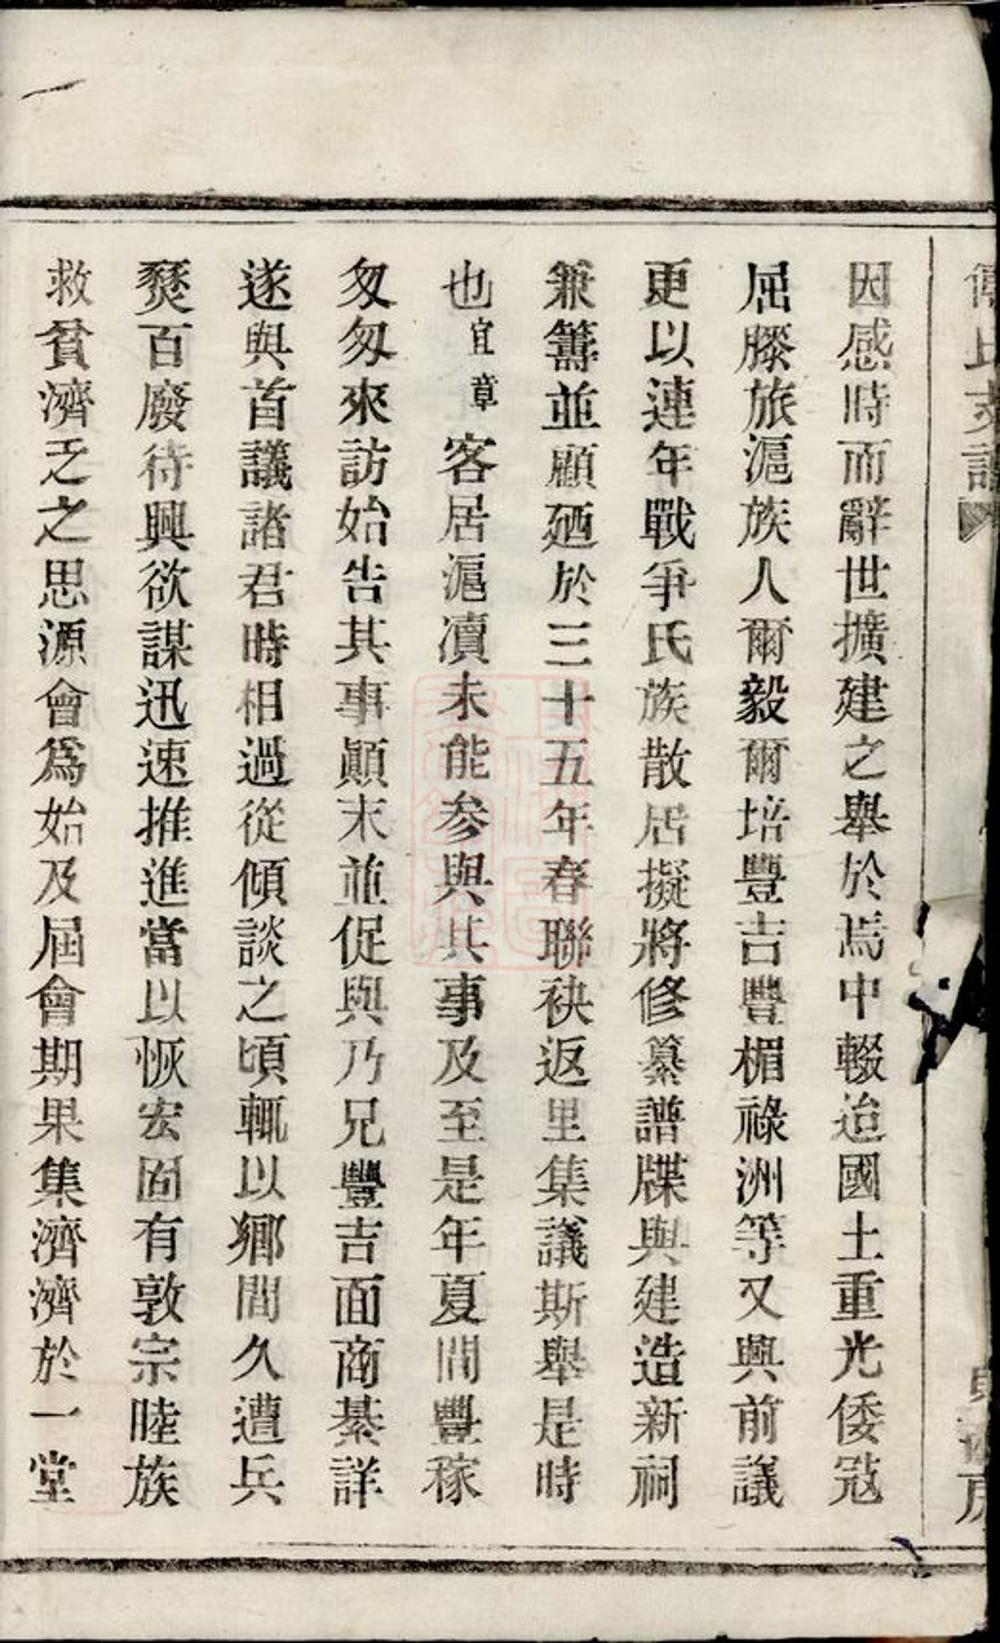 氏支譜
因感時而辭世擴建之舉於焉中輟迨國土重光倭冦
屈膝旅滬族人爾毅爾培豐吉豐楣祿洲等又興前議
更以連年戰爭氏族散居擬將修纂譜牒與建造新祠
兼籌並顧廼於三十五年春聯袂返里集議斯舉是時
也宜章客居滬瀆未能參與其事及至是年夏間豐稼
匆匆來訪始告其事顚末並促與乃兄豐吉面商綦詳
遂與首議諸君時相過從傾談之頃輒以鄉間久遭兵
燹百廢待興欲謀迅速推進當以恢宏固有敦宗睦族
救貧濟乏之思源會爲始及屆會期果集濟濟於一堂